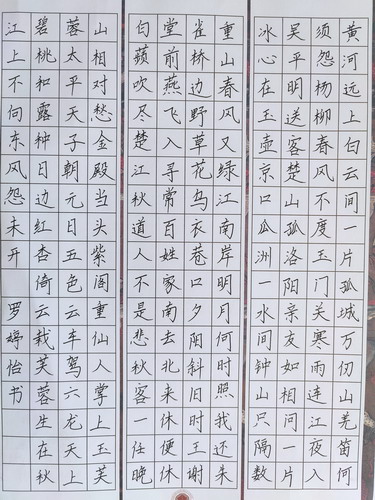 黄河远上白云间一片孤城万仞山羌笛何
须怨杨柳春风不度玉门关寒雨连江夜入
吴平明送客楚山孤洛阳亲友如相问一片
冰心在玉壶京口瓜洲一水间钟山只隔数
重山春风又绿江南岸明月何时照我还朱
雀桥边野草花乌衣巷口夕阳斜旧时王谢
堂前燕飞入寻常百姓家南去北来休便休
白蘋吹尽楚江秋道人不是悲秋客一任晚
山相对愁金殿当头紫阁重仙人掌上玉芙
蓉太平天子朝元日五色云车驾六龙天上
碧桃和露种日边红杏倚云栽芙蓉生在秋
江上不向东风怨未开 罗婷怡书